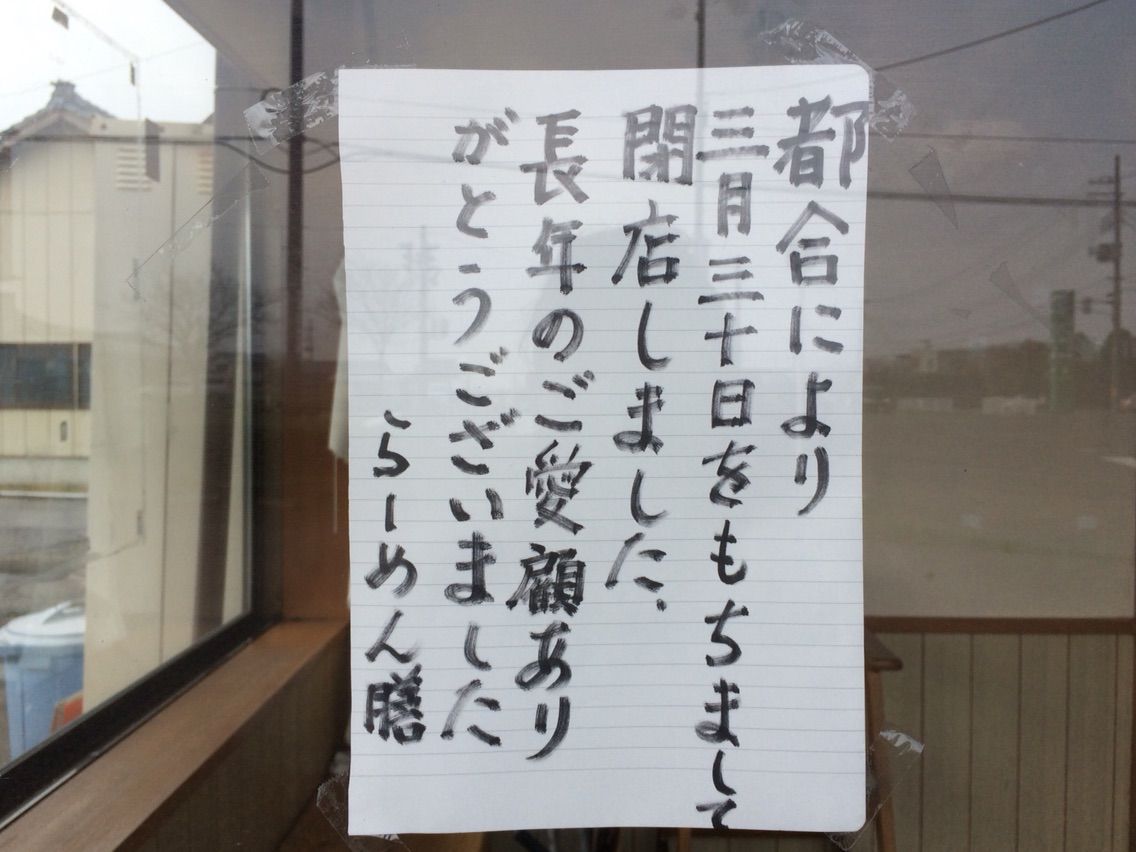 都合により
三月三十日をもちまして
閉店しました、
長年のご愛顧あり
がとうございました
らーめん膳